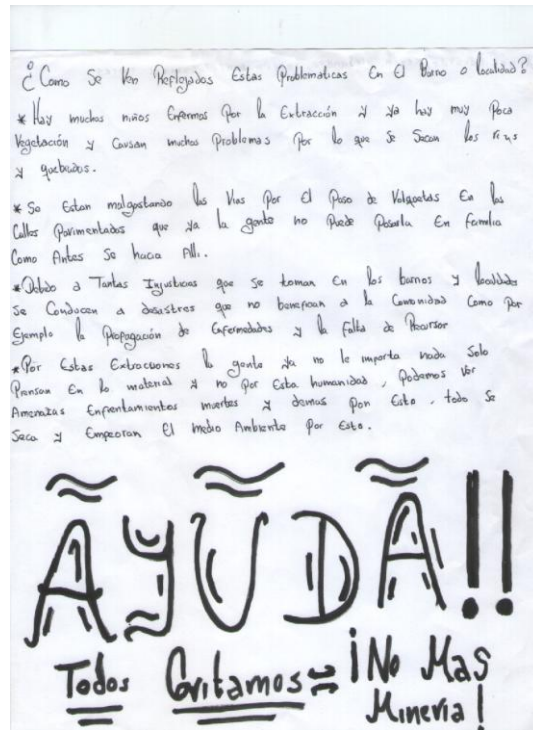 ¿Como Se Ven Reflejados Estas Problematicas En El Barrio o localidad?
* Hay muchos niños Enfermos Por la Extracción y ya hay muy Poca
Vegetación y Causan muchos Problemas Por lo que Se Secan los rios
y quebradas.
* Se Estan malgastando las Vias Por El Paso de Volquetas En las
Calles Pavimentadas que ya la gente no Puede Pasarla En familia
Como Antes Se hacia Alli.
* Debido a Tantas Injusticias que Se toman En los barrios y localidades
Se Conducen a desastres que no benefician a la Comunidad Como Por
Ejemplo la Propagación de Enfermedades y la falta de Recursor
* Por Estas Extracciones la gente ya no le importa nada Solo
Piensan En lo material y no Por Esta humanidad, Podemos Ver
Amenazas Enfrentamientos muertes y demas Por Esto, todo Se
Seca y Empeoran El medio Ambiente Por Esto.
AYUDA!!
Todos Gritamos = ¡No Mas
Mineria!